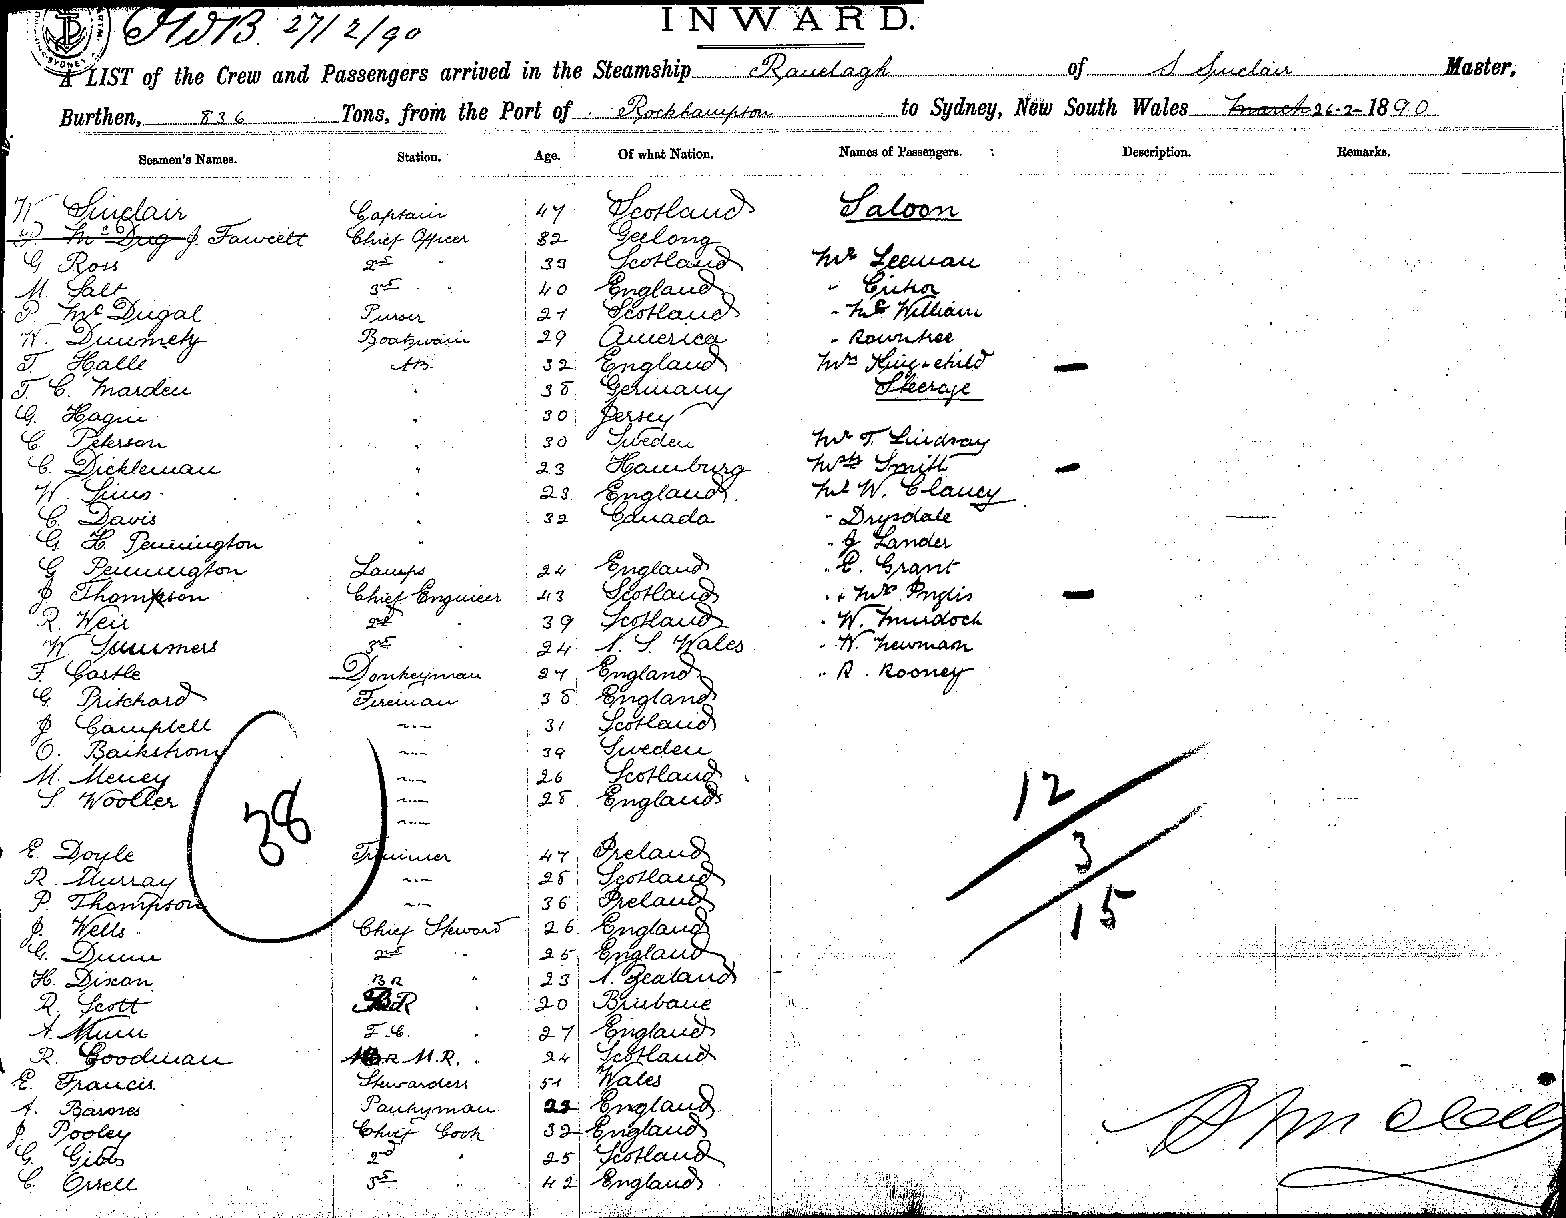 27/2/90
INWARD.
A LIST of the Crew and Passengers arrived in the Steamship Ranelagh of S Sinclair Master,
Burthen, 836 Tons, from the Port of Rockhampton to Sydney, New South Wales March 26-2-1890
Seamen's Names. Station. Age. Of what Nation. Names of Passengers. Description. Remarks.
W Sinclair Captain 47 Scotland Saloon
P. McDug J Fawcett Chief Officer 32 Geelong
G Ross 2nd " 33 Scotland Mr Leeman
M. Salt 3rd " 40 England "
P. McDugal Purser 27 Scotland " McWilliam
W. Boatswain 29 America " Rowntree
T. Halle AB 32 England Mrs King & child
T. C. Marden " 38 Germany Steerage
G. Hagin " 30 Jersey
C. Peterson " 30 Sweden Mr T. Lindsay
C. Dickleman " 23 Hamburg Mrs Smith
W. Sims " 23 England Mr W. Clancy
C. Davis " 32 Canada " Drysdale
G. H. Pennington " " J Lander
G Pennington Lamps 24 England " E. Grant
J Thompson Chief Engineer 43 Scotland " Mrs Inglis
R. Weir 2nd " 39 Scotland " W. Murdoch
W Summers 3rd " 24 N. S. Wales " W. Newman
F. Castle Donkeyman 27 England " R. Rooney
G. Pritchard Fireman 38 England
J Campbell " 31 Scotland
O. Baikstrom " 39 Sweden
M. Meney " 26 Scotland
S. Wooller " 28 England
"
38
12
3
15
E Doyle Trimmer 47 Ireland
R. Murray " 28 Scotland
P. Thompson " 36 Ireland
J. Wells Chief Steward 26 England
G. Dunn 2nd " 25 England
H. Dixon BR " 23 N. Zealand
R. Scott BR " 20 Brisbane
A. Munn F.C. " 27 England
R. Goodman M.R. " 24 Scotland
E. Francis Stewardess 51 Wales
A. Barnes Pantryman 22 England
J Pooley Chief Cook 32 England
G. Gibbs 2nd " 25 Scotland
C. Orrell 3rd " 42 England